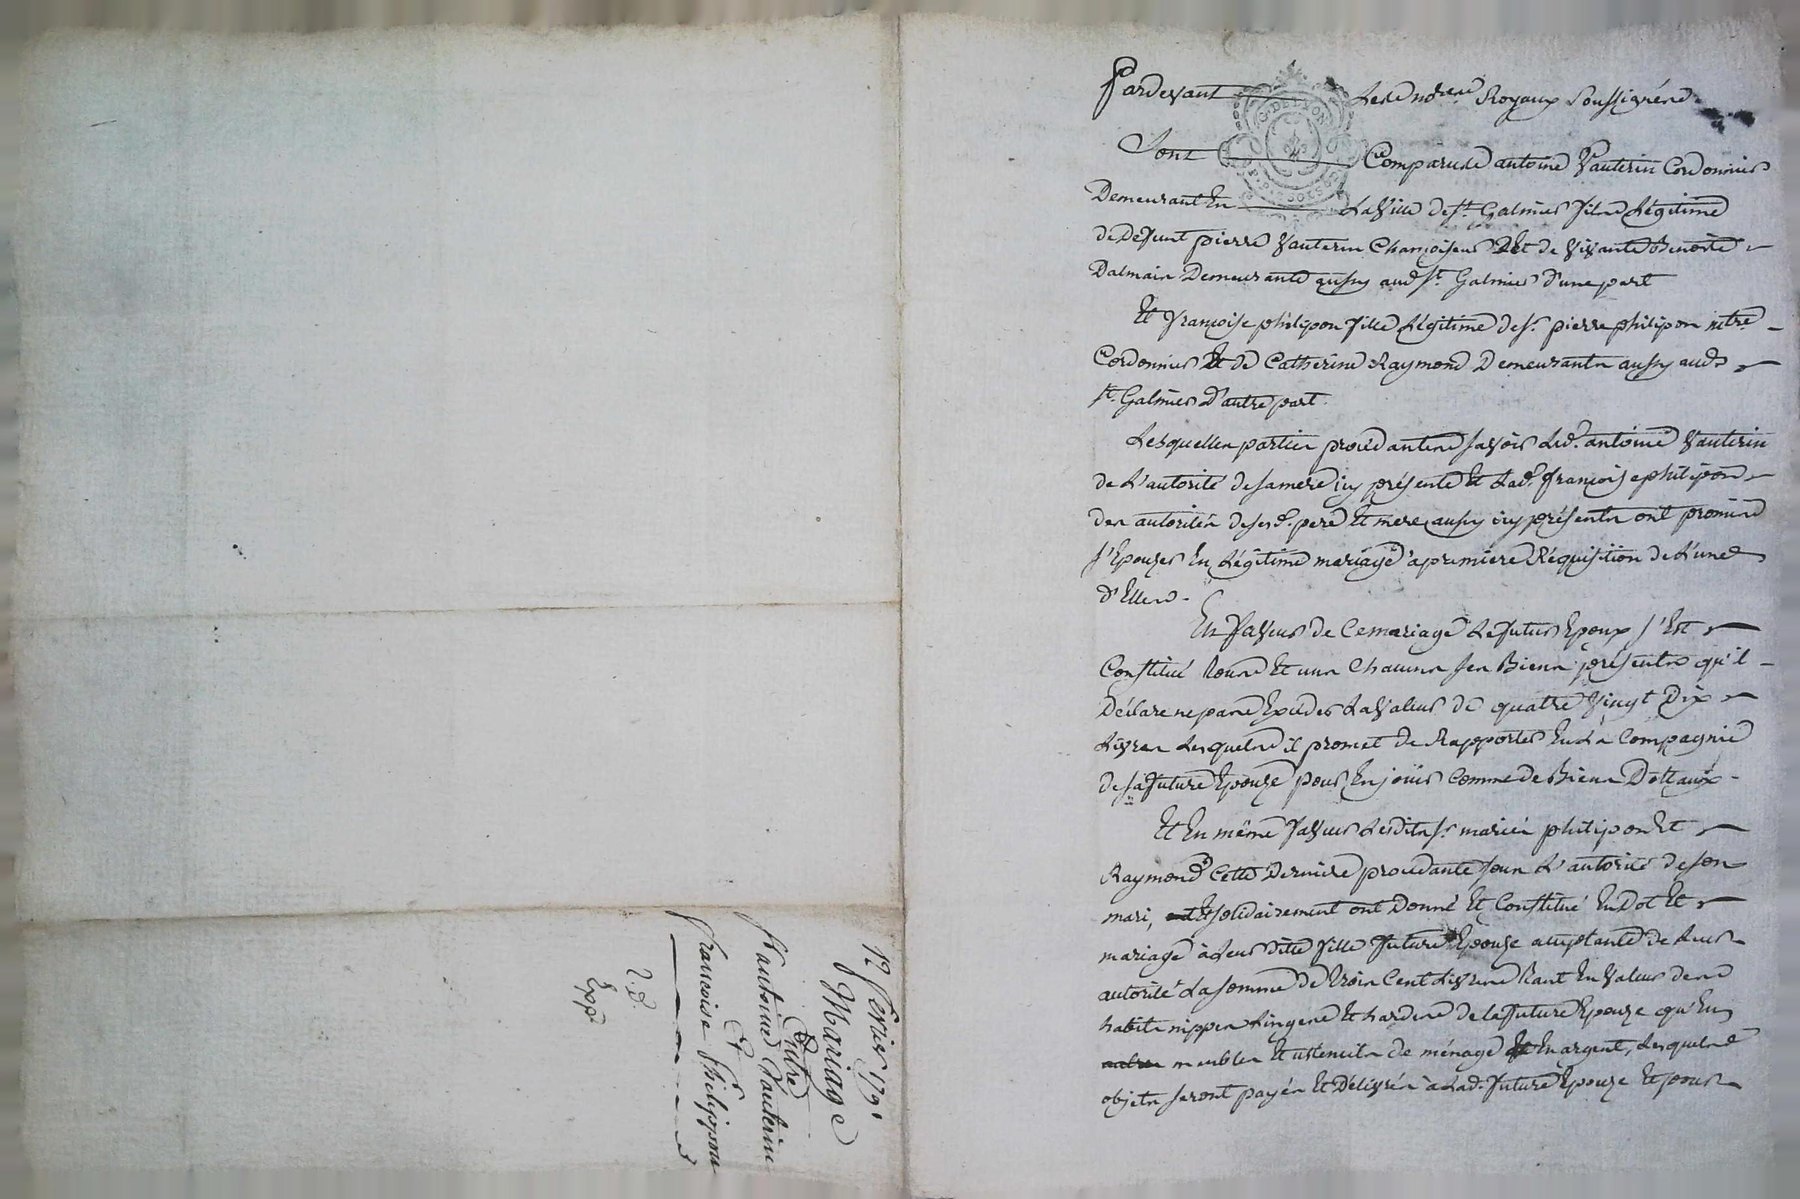 12 fevrier 1791
Mariage
Entre
Sr antoine Vauterin
Et
françoise philippon
Expé
Pardevant Les notaires Royaux Soussignés
Sont Comparus antoine Vauterin Cordonnier
Demeurant En La Ville de st. Galmier fils Légitime
de Défunt pierre Vauterin Chamoiseur Et de Vivante Benoite
Dalmain Demeurante aussy aud. st. Galmier d'une part
Et françoise philipon fille Légitime de sr. pierre philipon mtre.
Cordonnier Et de Catherine Raymond Demeurants aussy aud.
st. Galmier d'autre part
Lesquelles parties procédantes savoir Led. antoine Vauterin
de L'autorité de sa mere icy présente Et Lad. françoise philipon
des autorités de sesd. pere Et mere aussy icy présents ont promis
s'Epouser En Légitime mariage à premiere Réquisition de L'une
d'Elles.
En faveur de Ce mariage Le futur Epoux s'Est
Constitué tous Et uns Chacuns ses Biens présents qu'il
Déclare ne pas Exceder La Valeur de quatre vingt Dix
Livres Lesquels il promet de Rapporter En La Compagnie
de sa future Epouze pour En jouir Comme de Biens Dottaux.
Et En même faveur Lesdits sr. mariés philipon Et
Raymond Cette Derniere procédante sous L'autorité de son
mari, Et solidairement ont Donné Et Constitué En Dot Et
mariage à Leur ditte fille future Epouze acceptante de Leur
autorité La somme de trois Cent Livres tant En Valeur de
habits nippes Linges Et hardes de la future Epouze qu'En
meubles Et ustensils de ménage Et En argent, Lesquels
objets seront payés Et Délivrés à Lad. future Epouze Et pour